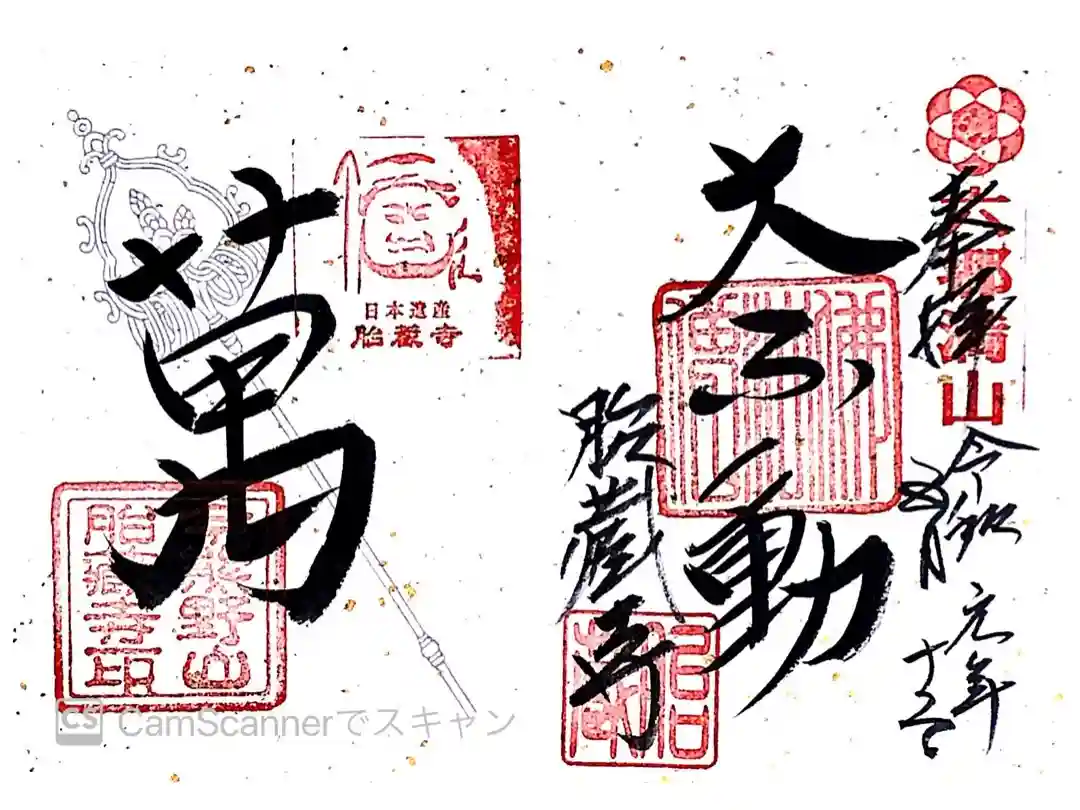 六郷満山
奉拝
令和元年
大不動
胎蔵寺
萬
日本遺産
胎蔵寺
熊野山
胎蔵寺印
CS CamScannerでスキャン